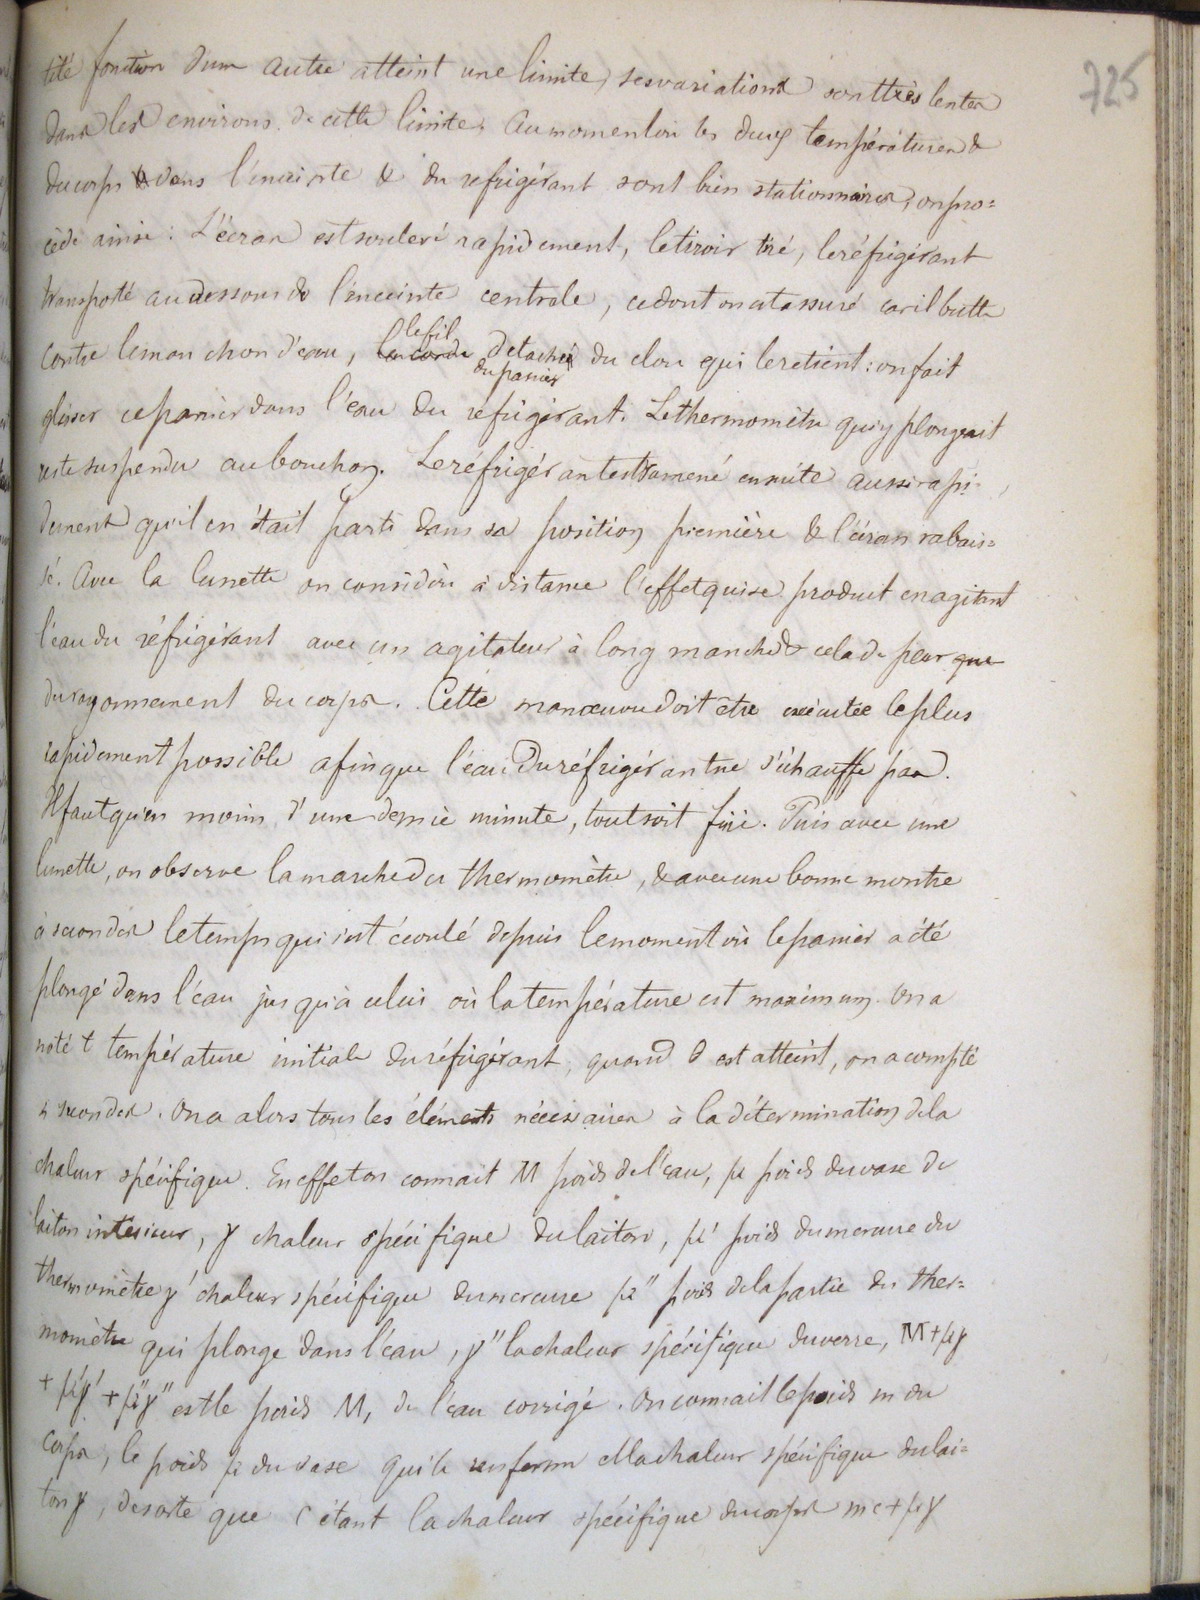 725
tité fonction d'une autre atteint une limite, ses variations sont très lentes
dans les environs de cette limite. Au moment où les deux températures &
du corps dans l'enceinte & du refrigérant sont bien stationnaires, on pro=
cède ainsi : L'écran est soulevé rapidement, le tiroir tiré, le réfrigérant
transporté au dessous de l'enceinte centrale, ce dont on est assuré car il butte
contre le manchon d'eau, la corde le fil détaché du clou qui le retient : on fait
du panier
glisser ce panier dans l'eau du refrigérant. Le thermomètre qui y plongeait
reste suspendu au bouchon. Le réfrigérant est ramené ensuite aussi rapi-
dement qu'il en était parti dans sa position première & l'écran rabais=
sé. Avec la lunette on considère à distance l'effet qui se produit en agitant
l'eau du réfrigérant avec un agitateur à long manche & cela de peur que
du rayonnement du corps. Cette manœuvre doit être exécutée le plus
rapidement possible afin que l'eau du réfrigérant ne s'échauffe pas.
Il faut qu'en moins d'une demie minute, tout soit fini. Puis avec une
lunette, on observe la marche du thermomètre, & avec une bonne montre
à secondes le temps qui s'est écoulé depuis le moment où le panier a été
plongé dans l'eau jusqu'à celui où la température est maximum. On a
noté t température initiale du réfrigérant, quand θ est atteint, on a compté
n secondes. On a alors tous les éléments nécessaires à la détermination de la
chaleur spécifique. En effet on connait M poids de l'eau, μ poids du vase de
laiton intérieur, γ chaleur spécifique du laiton, μ' poids du mercure du
thermomètre γ' chaleur spécifique du mercure μ" poids de la partie du ther=
momètre qui plonge dans l'eau, γ" la chaleur spécifique du verre, M+μγ
+ μ'γ' + μ"γ" est le poids M, de l'eau corrigé. On connait le poids m du
corps, le poids μ du vase qui le renferme & la chaleur spécifique du lai=
ton γ, de sorte que c étant la chaleur spécifique du corps mc+μγ